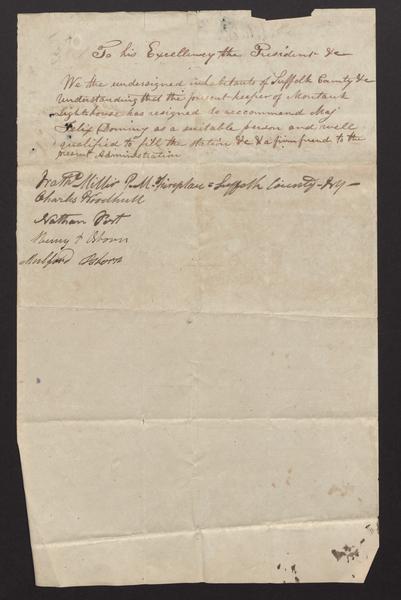 To his Excellency the President &c
We the undersigned inhabitants of Suffolk County &c
understanding that the present keeper of Montauk
Lighthouse has resigned to reccommend Maj.
Felix Dominy as a suitable person and well
qualified to fill the station &c & a firm friend to the
present Administration
Miller P.M. Fireplace Suffolk County NY
Charles Woodhull
Nathan Post
Henry Osborn
Mulford Osborn